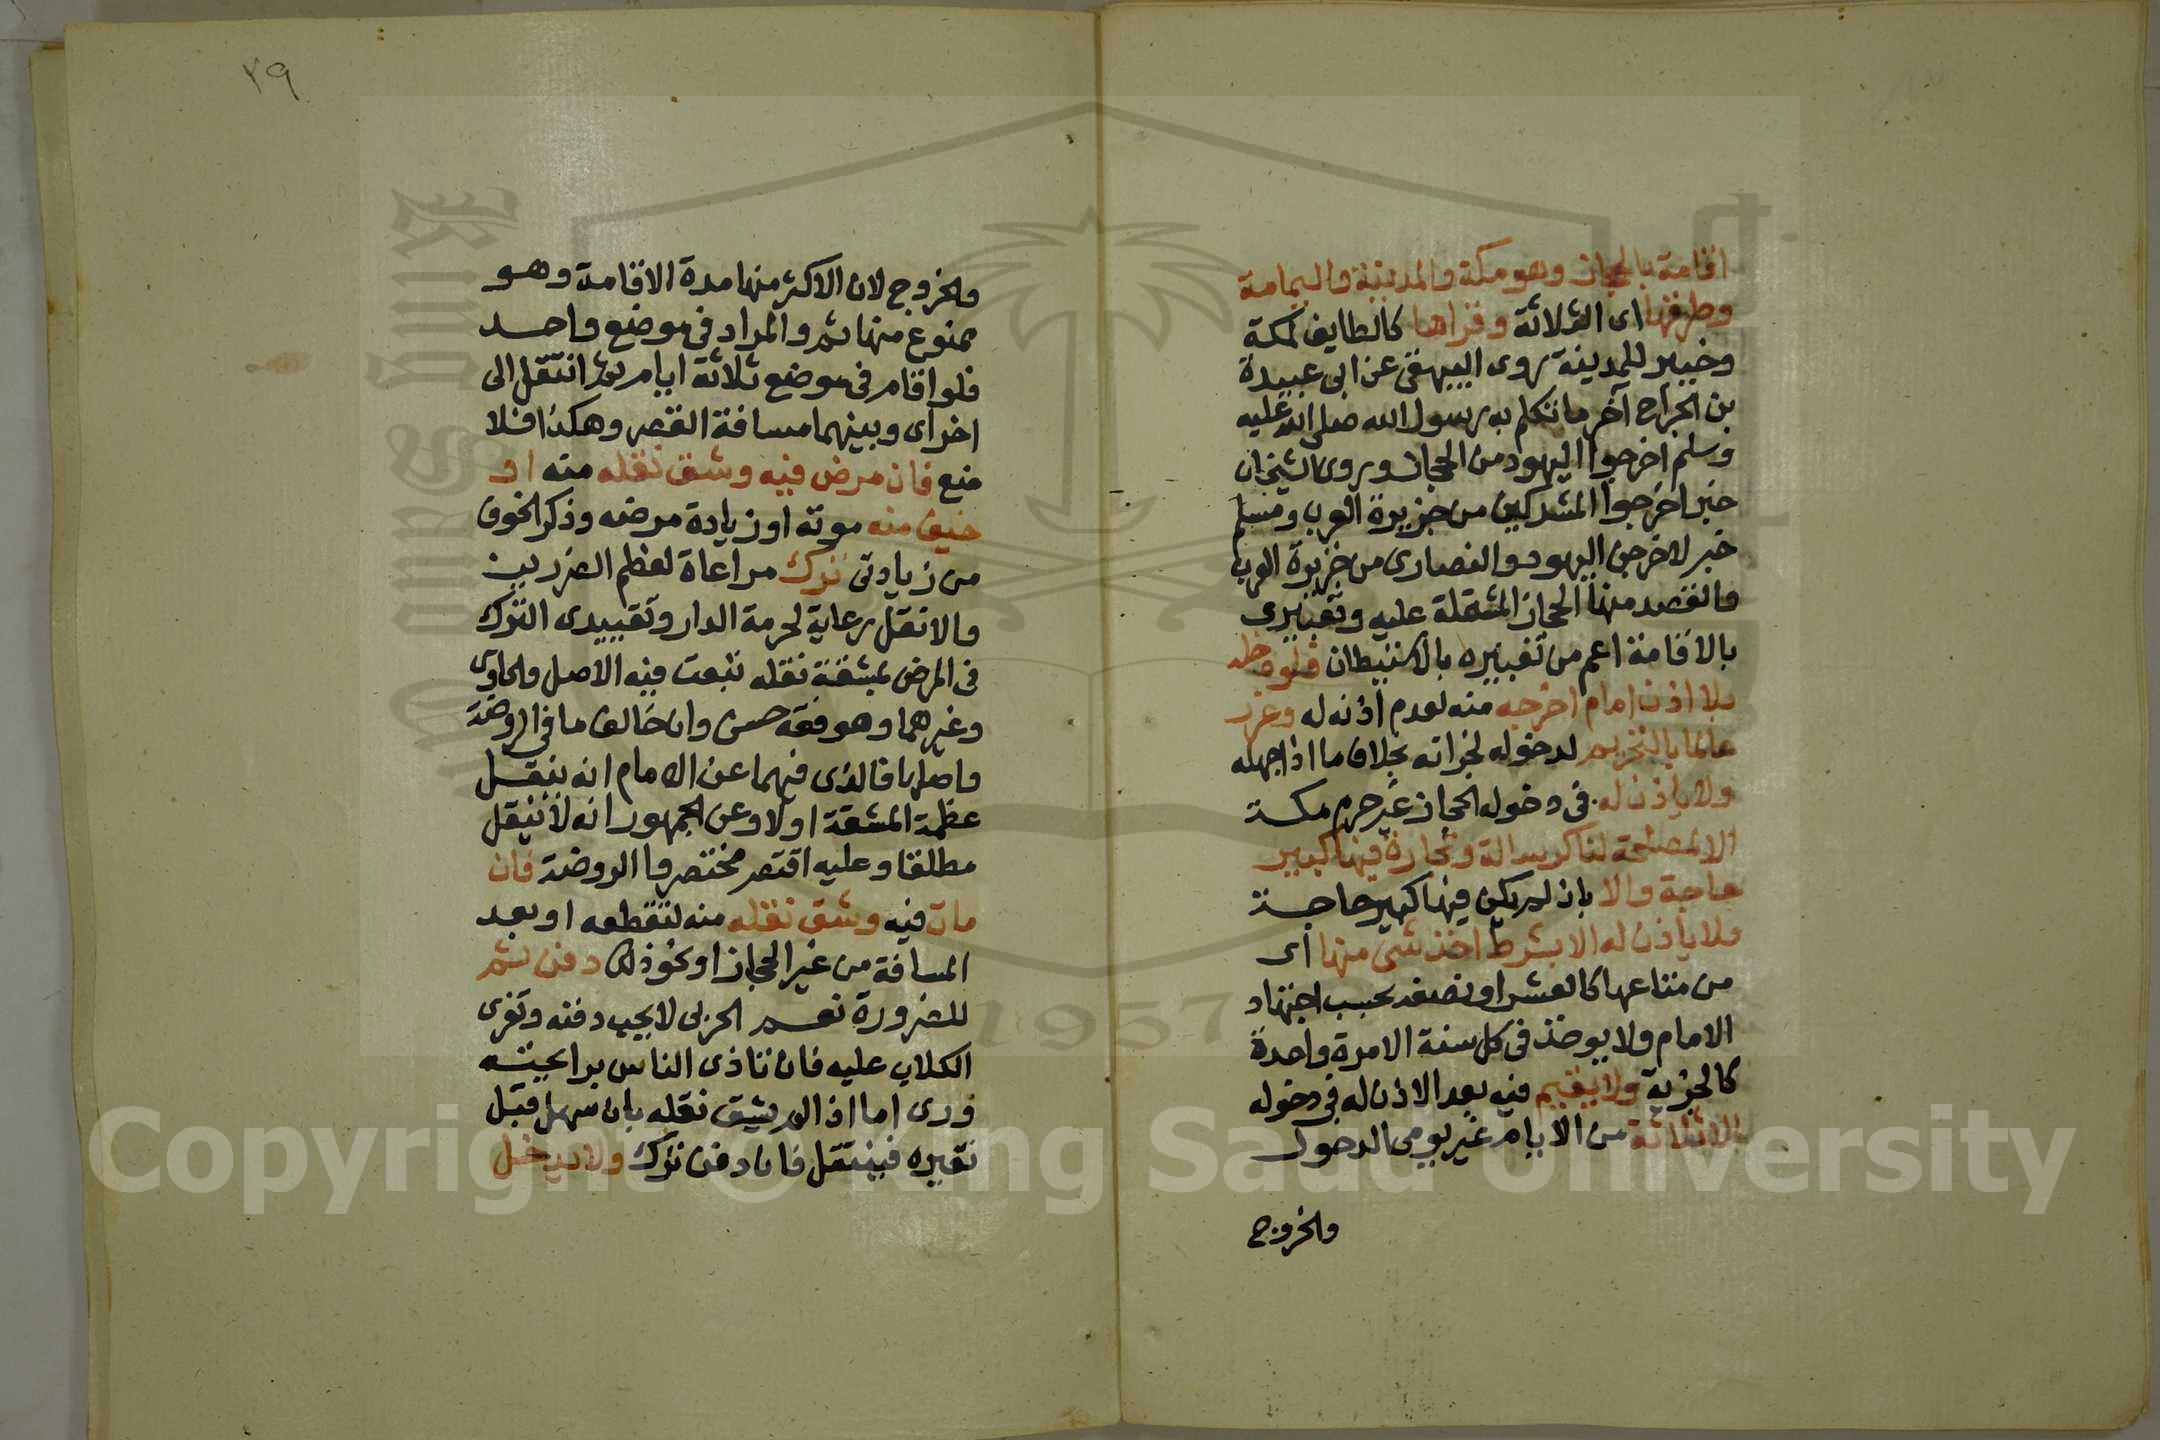 اقامة بالحجاز وهو مكة والمدينة واليمامة
وطرقها اى الثلاثة وقراها كالطايف لمكة
وخيبر للمدينة روى البيهقى عن ابى عبيدة
بن الجراح آخر ما تكلم به رسول الله صلى الله عليه
وسلم اخرجوا اليهود من الحجاز وروى الشيخان
خبر اخرجوا المشركين من جزيرة العرب ومسلم
خبر لاخرجن اليهود والنصارى من جزيرة العرب
والقصد منها الحجاز المشتملة عليه وتعبيرى
بالاقامة اعم من تعبيره بالاستيطان فلو دخله
بلا اذن امام اخرجه منه لعدم اذنه له وعزر
عالما بالتحريم لدخوله لجراته بخلاف ما اذا جهله
ولا ياذن له فى دخوله الحجاز غير حرم مكة
الا لمصلحة لنا كرسالة وتجارة فيها كبير
حاجة والا بان لم يكن فيها كبير حاجة
فلا ياذن له الا بشرط اخذ شى منها اى
من متاعها كالعشر او نصفه بحسب اجتهاد
الامام ولا يوخذ فى كل سنة الا مرة واحدة
كالجزية ولا يقيم فيه بعد الاذن له فى دخوله
الا ثلاثة من الايام غير يومى الدخول
والخروج
٣٩
والخروج لان الاكثر منها مدة الاقامة وهو
ممنوع منها ثم والمراد فى موضع واحد
فلو اقام فى موضع ثلاثة ايام ثم انتقل الى
اخر اى وبينهما مسافة القصر وهكذا فلا
منع فان مرض فيه وشق نقله منه او
خيف منه موته او زيادة مرضه وذكر الخوف
من زيادتى ترك مراعاة لعظم الضررين
والا نقل رعاية لحرمة الدار وتقييدى الترك
فى المرض بمشقة نقله تبعت فيه الاصل والحاوى
وغيرهما وهو فقه حسن وان خالف ما فى الروضة
واصلها فالذى فيهما عن الامام انه ينقل
عظمت المشقة اولا وعن الجمهور انه لا ينقل
مطلقا وعليه اقتصر مختصروا الروضة فان
مات فيه وشق نقله منه لتقطعه او بعد
المسافة من غير الحجاز او نحو ذلك دفن ثم
للضرورة نعم الحربى لا يجب دفنه وتغرى
الكلاب عليه فان تاذى الناس برايحته
وورى اما اذا لم يشق نقله بان سهل قبل
تغيره فينتقل فان دفن ترك ولا يدخل
Copyright © King Saud University
1957